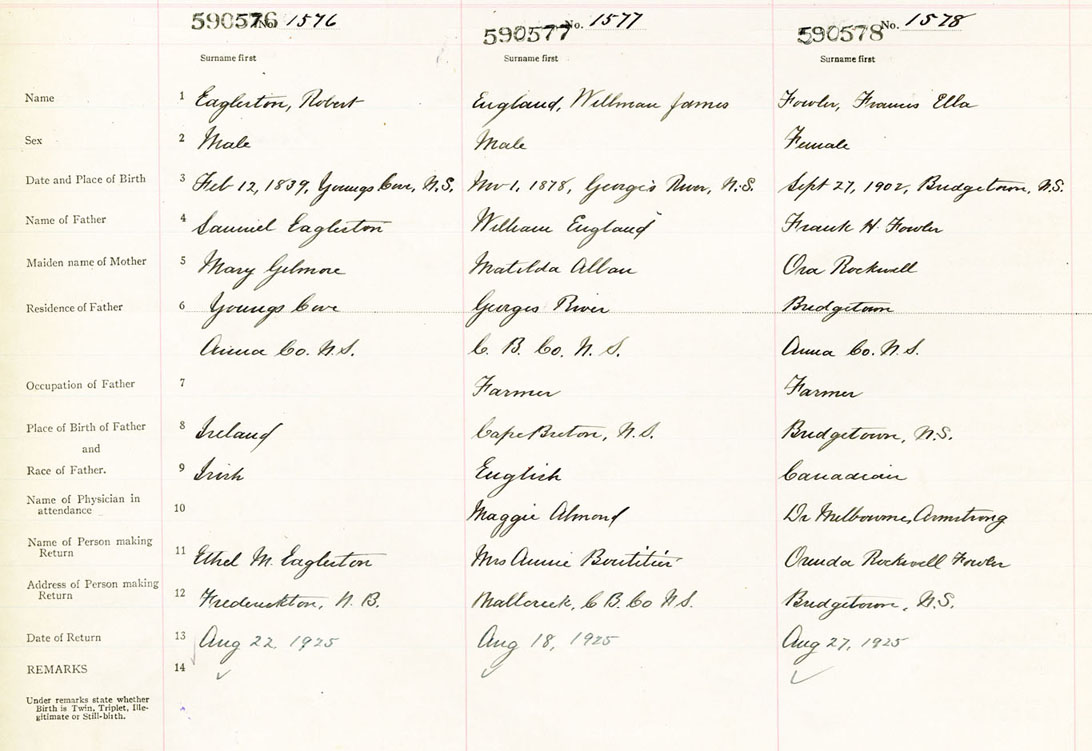 590576 No. 1576 590577 No. 1577 590578 No. 1578
Surname first Surname first Surname first
Name 1 Eaglerton, Robert England, Willman James Fowler, Francis Ella
Sex 2 Male Male Female
Date and Place of Birth 3 Feb 12, 1839, Youngs Cove, N.S. Nov 1, 1878, Georges River, N.S. Sept 27, 1902, Bridgetown, N.S.
Name of Father 4 Samuel Eaglerton William England Frank H Fowler
Maiden name of Mother 5 Mary Gilmore Matilda Allan Ora Rockwell
Residence of Father 6 Youngs Cove Georges River Bridgetown
Anna Co. N.S. C. B. Co. N. S. Anna Co. N.S.
Occupation of Father 7 Farmer Farmer
Place of Birth of Father 8 Ireland Cape Breton, N.S. Bridgetown, N.S.
and
Race of Father. 9 Irish English Canadian
Name of Physician in
attendance 10 Maggie Almond Dr Melbourne Armstrong
Name of Person making
Return 11 Ethel M. Eaglerton Mrs Annie Boutilier Orenda Rockwell Fowler
Address of Person making
Return 12 Frederickton, N.B. C B. Co N S. Bridgetown, N.S.
Date of Return 13 Aug 22, 1925 Aug 18, 1925 Aug 27, 1925
REMARKS 14
Under remarks state whether
Birth is Twin, Triplet, Ille-
gitimate or Still-birth.